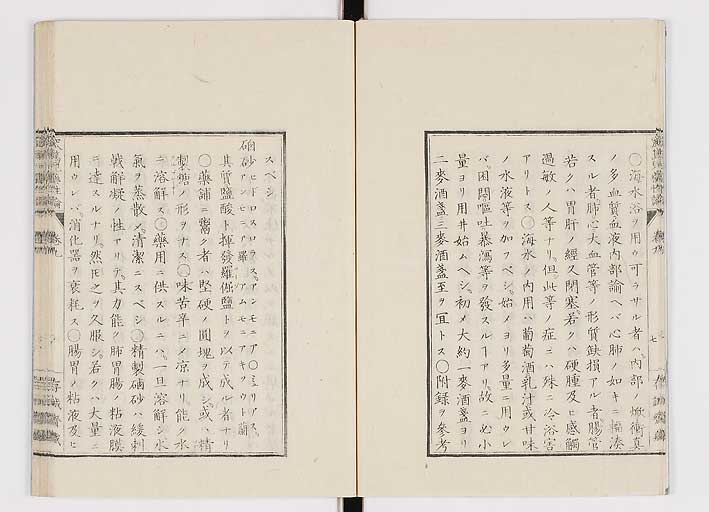 ○海水浴ヲ用ウ可ラサル者ハ、内部ノ焮衝真
ノ多血質血液内部諭ヘバ心肺ノ如キニ輻湊
スル者肺心大血管等ノ形質缺損アル者腸管
若クハ胃肝ノ經久閉塞、若クハ硬腫及ヒ感觸
過敏ノ人等ナリ但此等ノ症ニハ殊ニ冷浴害
アリトス○海水ノ内用ハ葡萄酒乳汁或甘味
ノ水液等ヲ加フベシ、始メヨリ多量ニ用ウレ
バ、困悶嘔吐暴瀉等ヲ發スルヿアリ、故ニ必小
量ヨリ用井始ムヘシ、初メ大約一麥酒盞ヨリ
二麥酒盞三麥酒盞至ヲ宜トス○附録ヲ參考
スベシ
硇砂
其質鹽酸ト揮發羅倔鹽トヲ以テ成ル者ナリ
○藥鋪ニ鬻ク者ハ堅硬ノ圓塊ヲ成シ、或ハ精
製糖ノ形ヲナス○味苦辛ニメ凉ナリ能ク水
ニ溶解ス○藥用ニ供スルニハ、一旦溶解シ水
氣ヲ蒸散メ清潔ニスベシ○精製硇砂ハ緩刺
戟解凝ノ性アリテ、其力能ク肺胃腸ノ粘液膜
ニ達スルナリ、然𪜈之ヲ久服シ、若クハ大量ニ
用ウレバ消化器ヲ衰耗ス○腸胃ノ粘液及ヒ